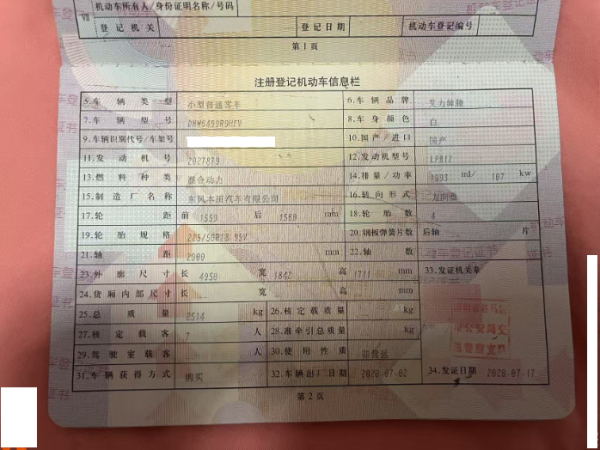 机动车所有人/身份证明名称/号码
登记机关 登记日期 机动车登记编号
第1页
注册登记机动车信息栏
5.车辆类型 小型普通客车 6.车辆品牌 艾力绅牌
7.车辆型号 8.车身颜色 白
9.车辆识别代号/车架号 10.国产/进口 国产
11.发动机号 12.发动机型号 LFB12
13.燃料种类 混合动力 14.排量/功率 1993 ml/ 107 kw
15.制造厂名称 东风本田汽车有限公司 16.转向形式 方向盘
17.轮距 前 1559 后 1560 mm 18.轮胎数 4
19.轮胎规格 20.钢板弹簧片数 后轴 片
21.轴距 2900 mm 22.轴数
23.外廓尺寸 长 4950 宽 1842 高 1711 mm 33.发证机关章
24.货厢内部尺寸 长 宽 高 mm
25.总质量 2514 kg 26.核定载质量 kg
27.核定载客 7 人 28.准牵引总质量 kg
29.驾驶室载客 人 30.使用性质 非营运
31.车辆获得方式 购买 32.车辆出厂日期 2020-07-02 34.发证日期 2020-07-17
第2页